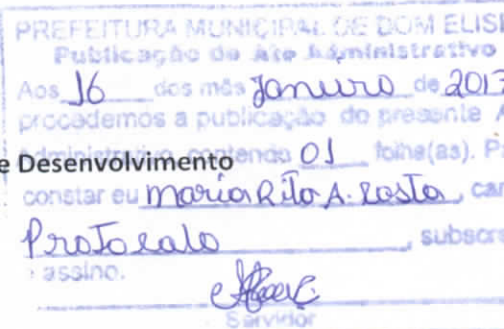 PREFEITURA MUNICIPAL DE DOM ELISE
Publicação de Ato Administrativo
Aos 16 dos mês Janeiro de 2017
procedemos a publicação do presente A
Administrativo contendo 01 folha(as). P
e Desenvolvimento
constar eu maria Rita A. Costa, car
Protocalo, subscr
assino.
Servidor